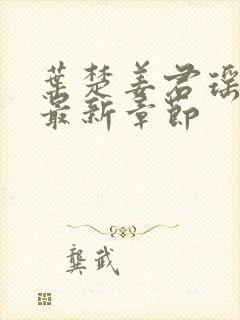 葉楚姜君瑶
最新章節
龔武